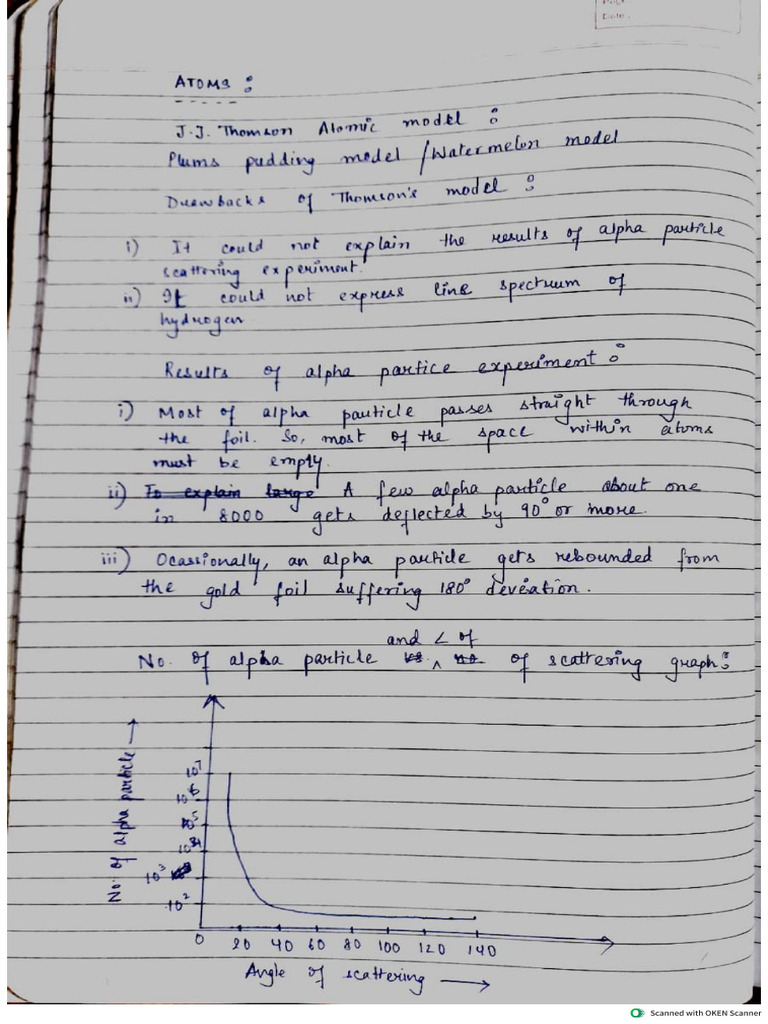 Page
Date:
ATOMS :
J.J. Thomson Atomic model :
Plums pudding model / Watermelon model
Drawbacks of Thomson's model :
i) It could not explain the results of alpha particle
scattering experiment.
ii) It could not express line spectrum of
hydrogen
Results of alpha partice experiment :
i) Most of alpha particle passes straight through
the foil. So, most of the space within atoms
must be empty.
ii) To explain large A few alpha particle about one
in 8000 gets deflected by 90° or more.
iii) Ocassionally, an alpha particle gets rebounded from
the gold foil suffering 180° deveation.
and < of
No. of alpha particle vs. ^ no. of scattering graph :
No. of alpha particle →
10⁷
10⁶
10⁵
10⁴
10³
10²
0 20 40 60 80 100 120 140
Angle of scattering →
Scanned with OKEN Scanner